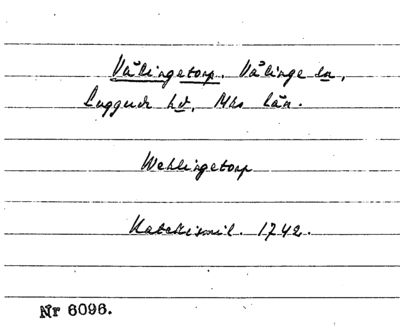 Välingetorp. Välinge sn,
Luggude hd, Mhs län.
Wehlingetorp
Katekismil. 1742.
Nr 6096.